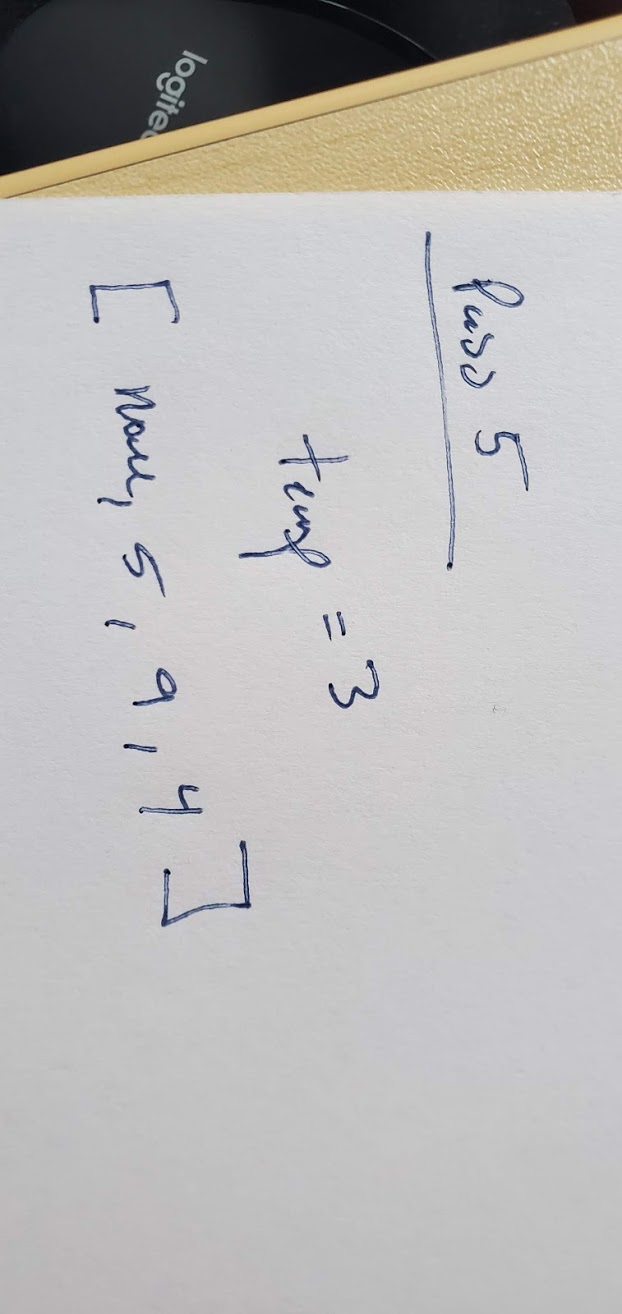 logitec
Paso 5
temp = 3
[ None, 5, 9, 4 ]